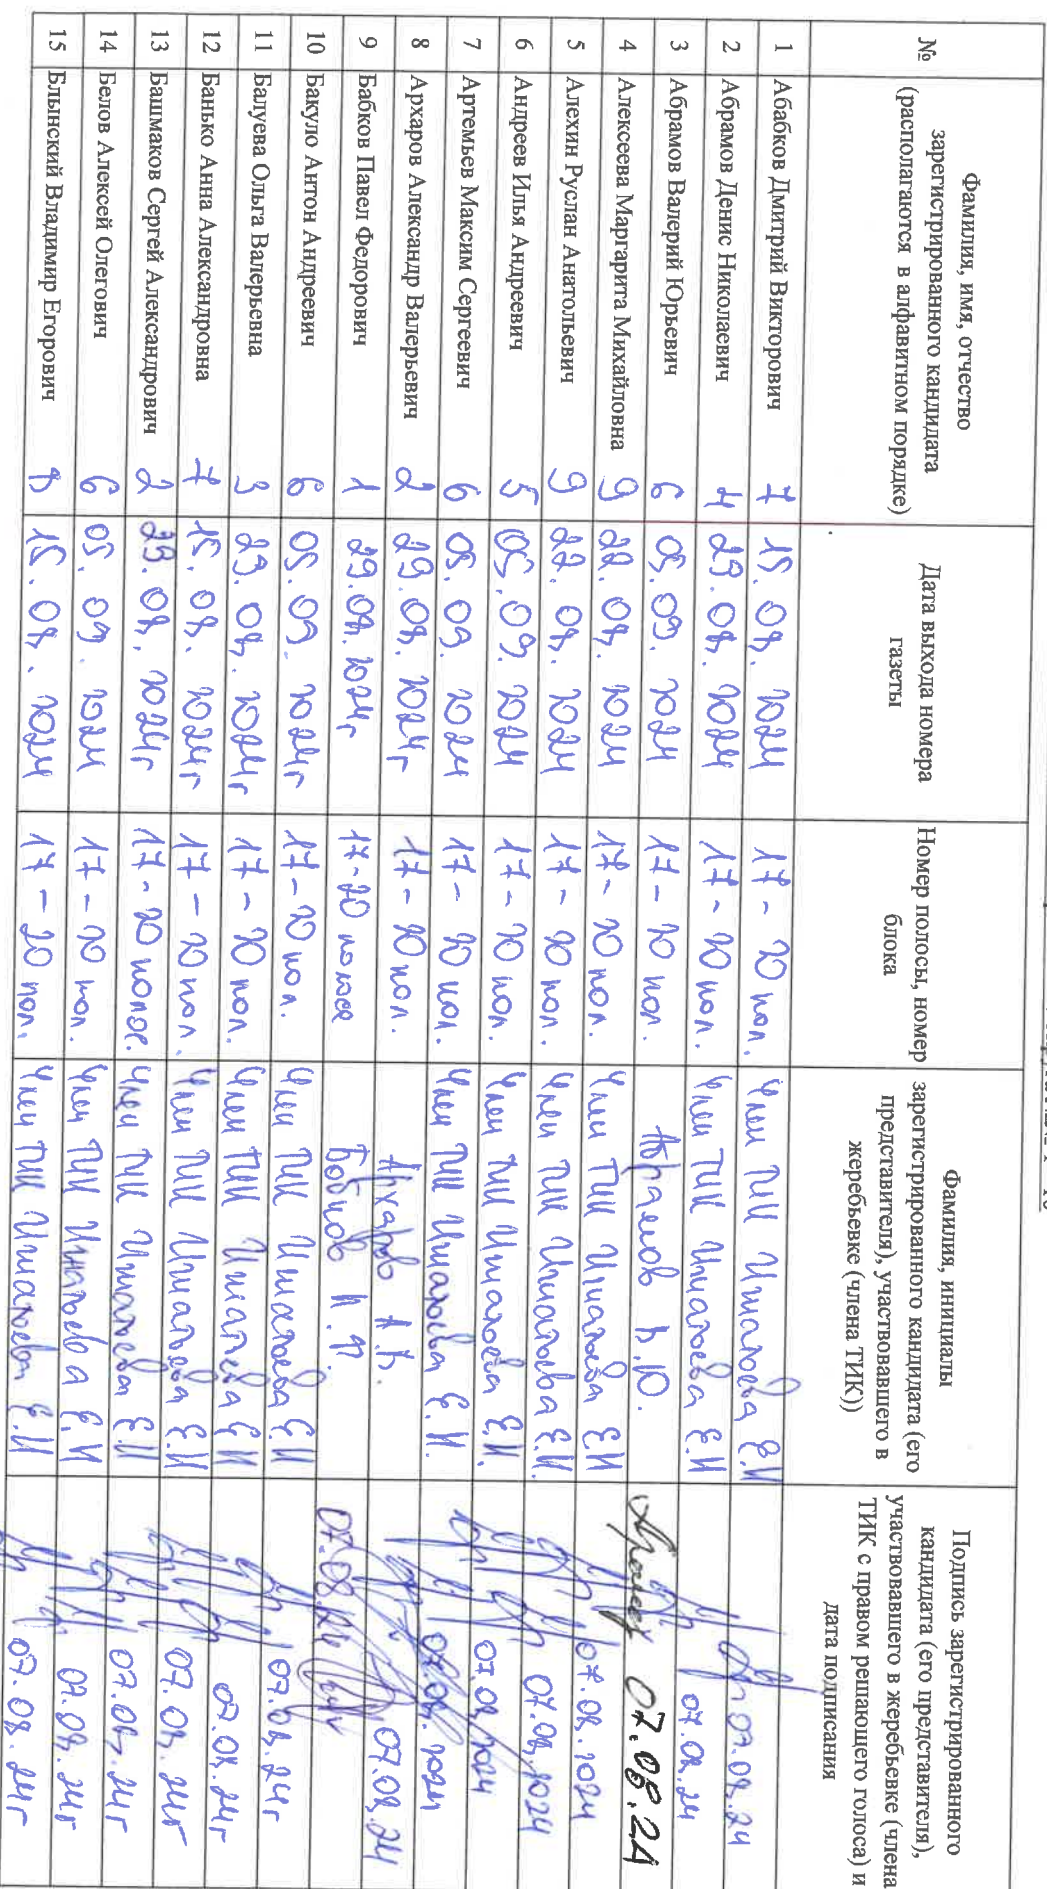 № | Фамилия, имя, отчество зарегистрированного кандидата (располагаются в алфавитном порядке) | Дата выхода номера газеты | Номер полосы, номер блока | Фамилия, инициалы зарегистрированного кандидата (его представителя), участвовавшего в жеребьевке (члена ТИК)) | Подпись зарегистрированного кандидата (его представителя), участвовавшего в жеребьевке (члена ТИК с правом решающего голоса) и дата подписания
1 | Абабков Дмитрий Викторович 7 | 15.08.2024 | 17-20 пол. | Член ТИК Игнатьева Е.И | 07.08.24
2 | Абрамов Денис Николаевич 4 | 29.08.2024 | 17-20 пол. | Член ТИК Игнатьева Е.И | 07.08.24
3 | Абрамов Валерий Юрьевич 6 | 05.09.2024 | 17-20 пол. | Абрамов В.Ю. | 07.08.24
4 | Алексеева Маргарита Михайловна 9 | 22.08.2024 | 17-20 пол. | Член ТИК Игнатьева Е.И | 07.08.2024
5 | Алехин Руслан Анатольевич 9 | 22.08.2024 | 17-20 пол. | Член ТИК Игнатьева Е.И. | 07.08.2024
6 | Андреев Илья Андреевич 5 | 05.09.2024 | 17-20 пол. | Член ТИК Игнатьева Е.И. | 07.08.2024
7 | Артемьев Максим Сергеевич 6 | 05.09.2024 | 17-20 пол. | Член ТИК Игнатьева Е.И. | 07.08.2024
8 | Архаров Александр Валерьевич 2 | 29.08.2024г | 17-20 пол. | Архаров А.В. | 07.08.24
9 | Бабков Павел Федорович 1 | 29.08.2024г | 17-20 полоса | Бабков П.Ф. | 07.08.24
10 | Бакуло Антон Андреевич 6 | 05.09.2024г | 17-20 пол. | Член ТИК Игнатьева Е.И | 07.08.24г
11 | Балуева Ольга Валерьевна 3 | 29.08.2024г | 17-20 пол. | Член ТИК Игнатьева Е.И | 07.08.24г
12 | Банько Анна Александровна 7 | 15.08.2024г | 17-20 пол. | Член ТИК Игнатьева Е.И | 07.08.24г
13 | Башмаков Сергей Александрович 2 | 29.08.2024г | 17-20 полос. | Член ТИК Игнатьева Е.И | 07.08.24г
14 | Белов Алексей Олегович 6 | 05.09.2024 | 17-20 пол. | Член ТИК Игнатьева Е.И | 07.08.24г
15 | Блынский Владимир Егорович 8 | 15.08.2024 | 17-20 пол. | Член ТИК Игнатьева Е.И | 07.08.24г